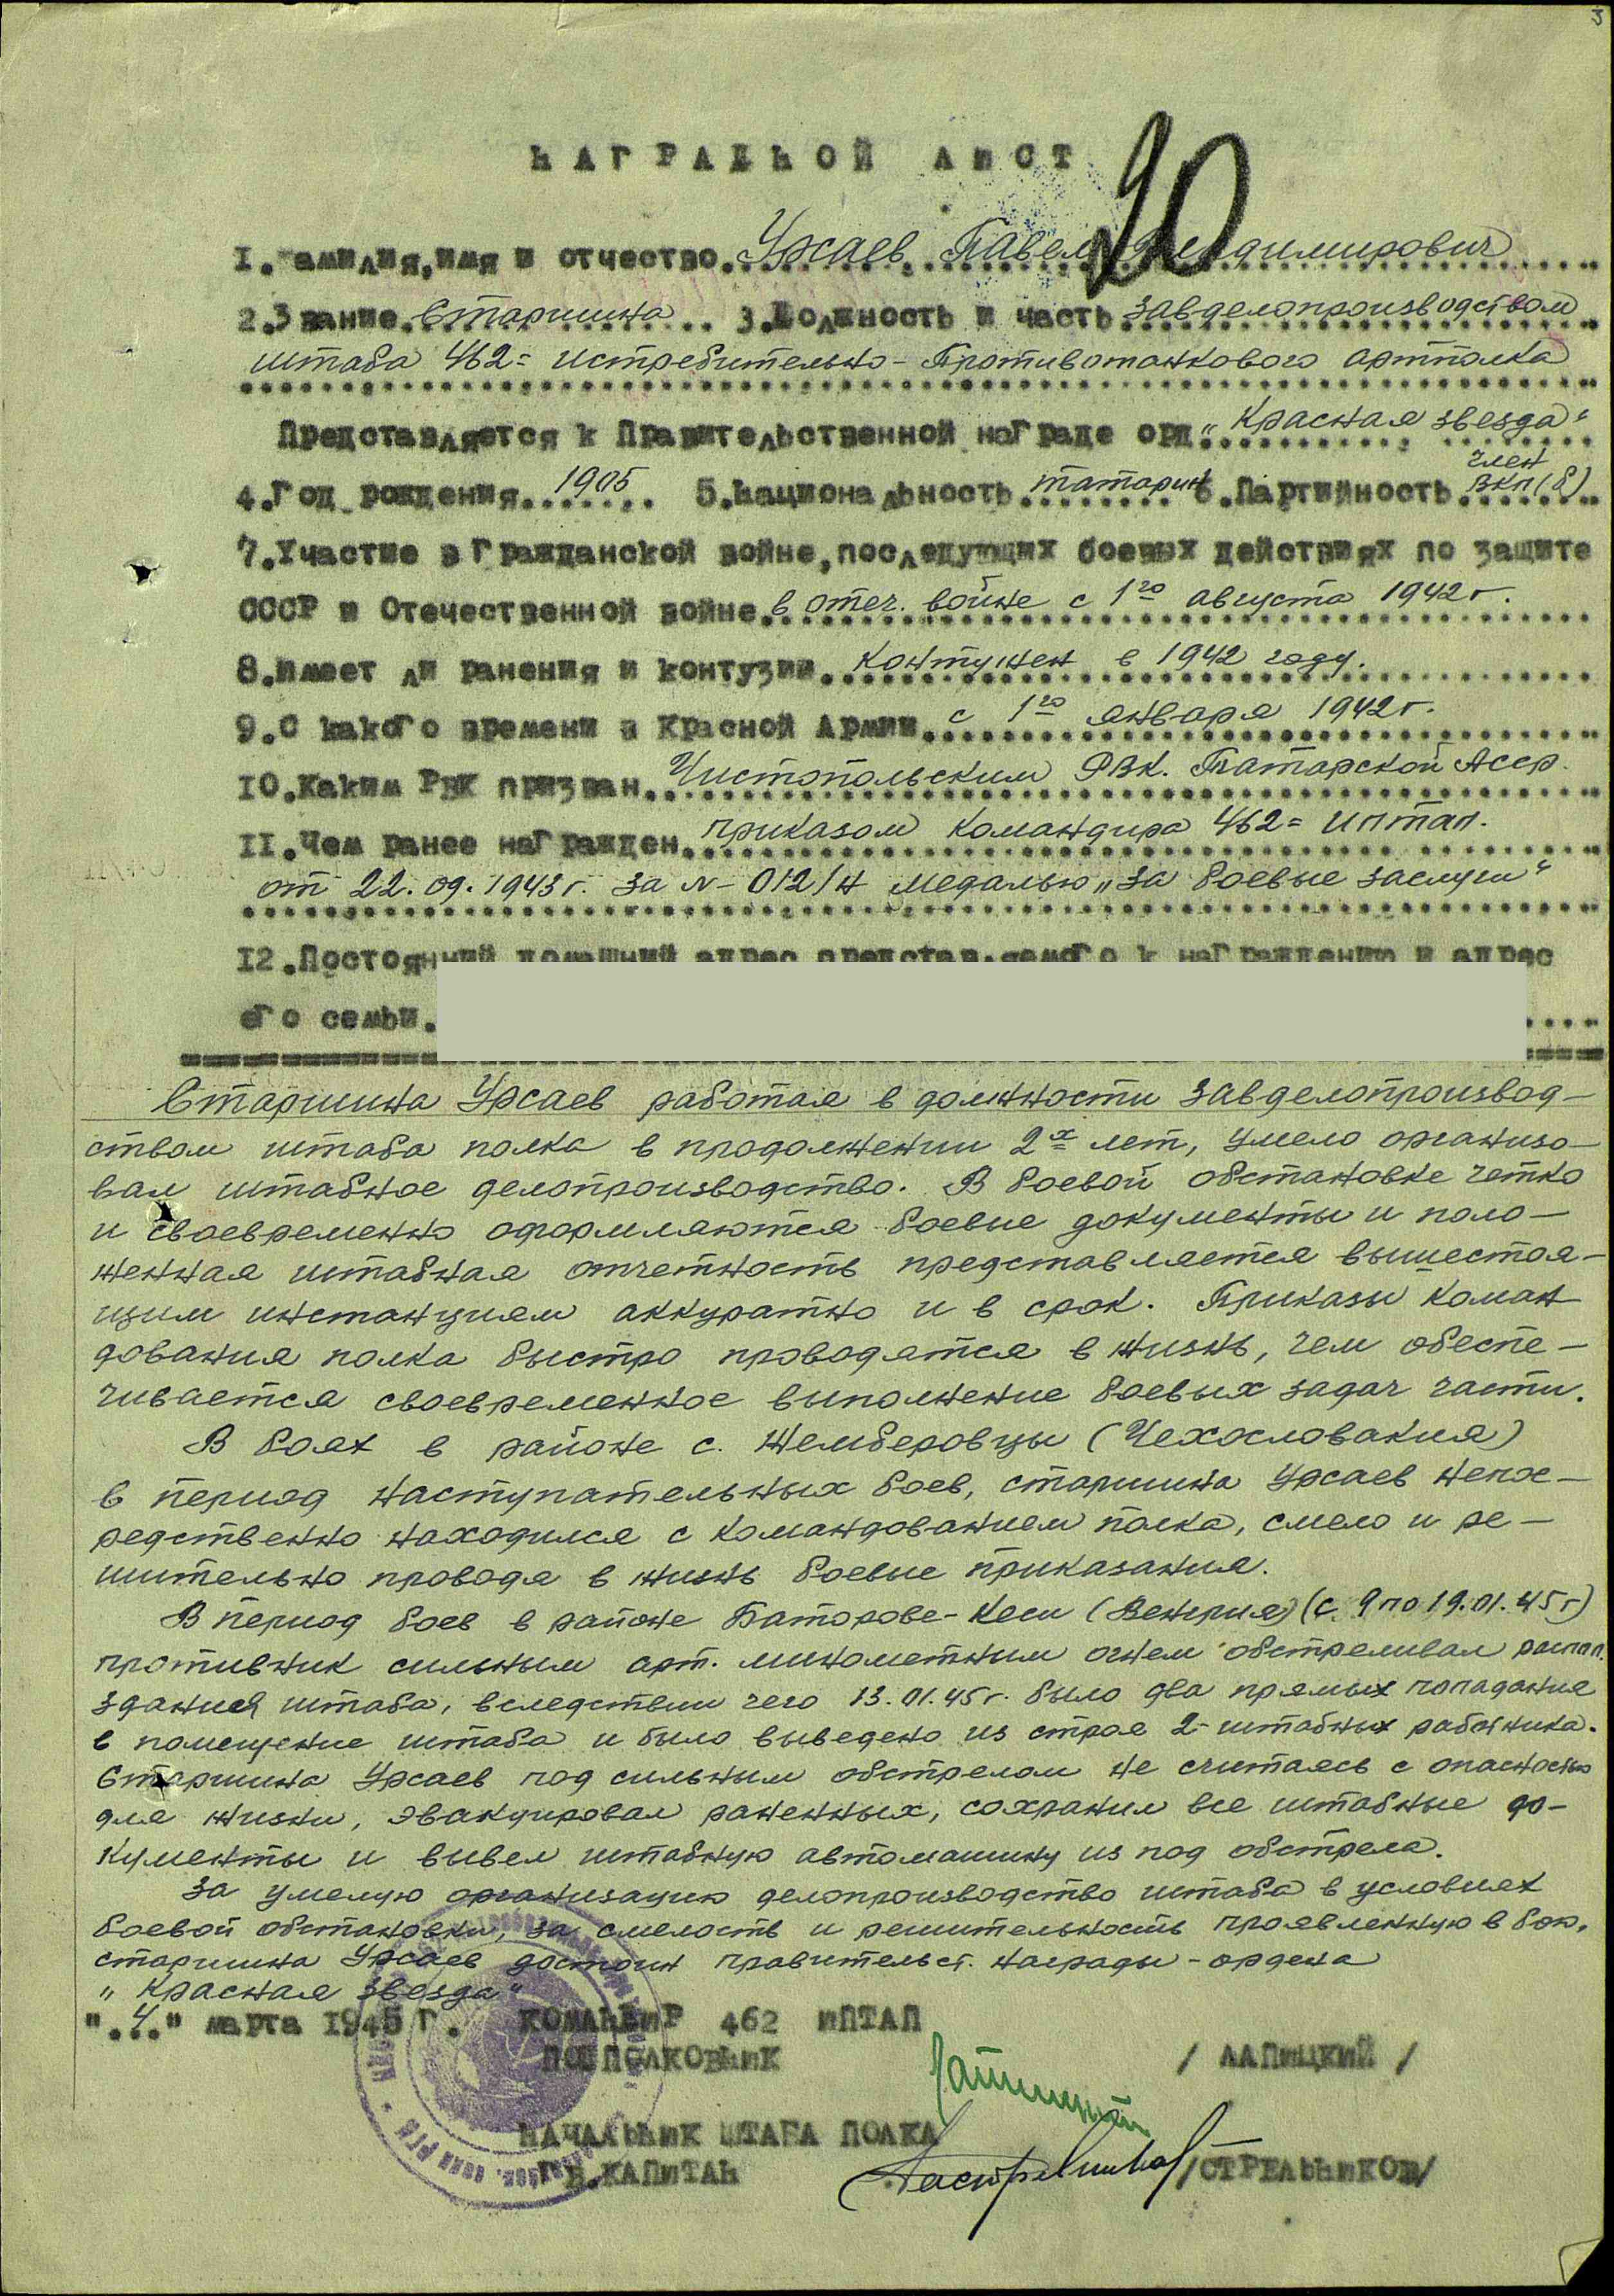 3
НАГРАДНОЙ ЛИСТ
20
1. Фамилия, имя и отчество Урсаев Павел Владимирович
2. Звание Старшина 3. Должность и часть завделопроизводством
штаба 462= истребительно-Противотанкового артполка
Представляется к Правительственной награде орд. "Красная звезда"
4. Год рождения 1905 5. Национальность татарин 6. Партийность член ВКП(б)
7. Участие в Гражданской войне, последующих боевых действиях по защите
СССР и Отечественной войне в отеч. войне с 1го августа 1942 г.
8. Имеет ли ранения и контузии контужен в 1942 году.
9. С какого времени в Красной Армии с 1го января 1942 г.
10. Каким РВК призван Чистопольским РВК. Татарской Асср.
11. Чем ранее награжден приказом командира 462= иптап.
от 22.09.1943 г. за N- 012/н медалью "за боевые заслуги"
12. Постоянный домашний адрес представляемого к награждению и адрес
его семьи.
Старшина Урсаев работая в должности завделопроизвод-
ством штаба полка в продолжении 2х лет, умело организо-
вал штабное делопроизводство. В боевой обстановке четко
и своевременно оформляются боевые документы и поло-
женная штабная отчетность представляется вышестоя-
щим инстанциям аккуратно и в срок. Приказы коман
дования полка быстро проводятся в жизнь, чем обеспе-
чивается своевременное выполнение боевых задач части.
В боях в районе с. Жемберовцы (Чехословакия)
в период наступательных боев, старшина Урсаев непос-
редственно находился с командованием полка, смело и ре-
шительно проводя в жизнь боевые приказания.
В период боев в районе Баторове-Кеси (Венгрия) (с 9 по 19.01.45 г)
противник сильным арт. минометным огнем обстреливал распол.
здания штаба, вследствии чего 13.01.45 г. было два прямых попадания
в помещение штаба и было выведено из строя 2- штабных работника.
Старшина Урсаев под сильным обстрелом не считаясь с опасностью
для жизни, эвакуировал раненных, сохранил все штабные до-
кументы и вывел штабную автомашину из под обстрела.
За умелую организацию делопроизводство штаба в условиях
боевой обстановки, за смелость и решительность проявленную в бою,
старшина Урсаев достоин правительст. награды - ордена
"Красная Звезда"
"4" марта 1945 г. КОМАНДИР 462 ИПТАП
ПОДПОЛКОВНИК / ЛАПИЦКИЙ /
НАЧАЛЬНИК ШТАБА ПОЛКА
ГВ. КАПИТАН /СТРЕЛЬНИКОВ/